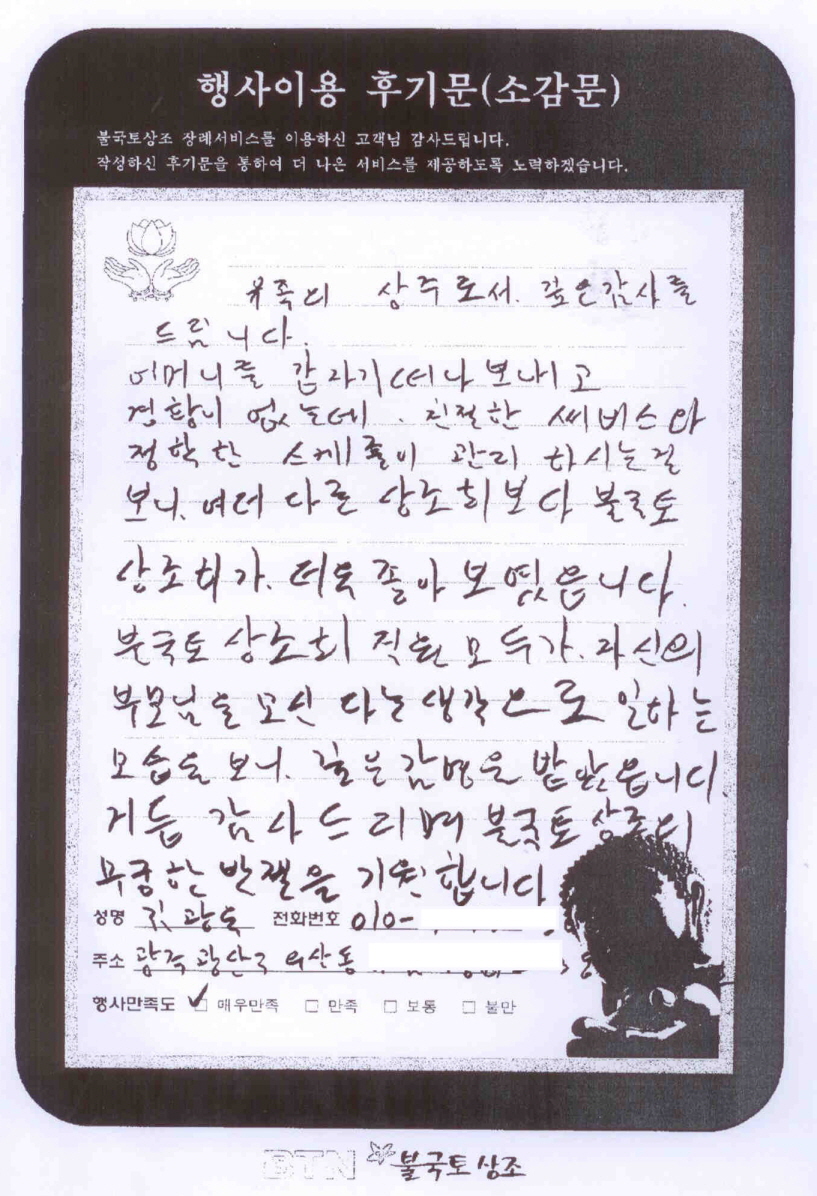 행사이용 후기문(소감문)
불국토상조 장례서비스를 이용하신 고객님 감사드립니다.
작성하신 후기문을 통하여 더 나은 서비스를 제공하도록 노력하겠습니다.
유족의 상주로서. 깊은감사를
드립니다.
어머니를 갑자기 떠나 보내고
경황이 없는데. 친절한 써비스와
정확한 스케줄이 관리 하시는걸
보니, 여러 다른 상조회보다 불국토
상조회가. 더욱 좋아 보였읍니다.
불국토 상조회 직원 모두가. 자신의
부모님을 모신 다는 생각으로 일하는
모습을 보니. 깊은 감명을 받았읍니다.
거듭 감사드리며 불국토 상조의
무궁한 발전을 기원 합니다
성명 광 전화번호 010-
주소 광주 광산구
행사만족도 ✓ 매우만족 □ 만족 □ 보통 □ 불만
BTN 불국토상조